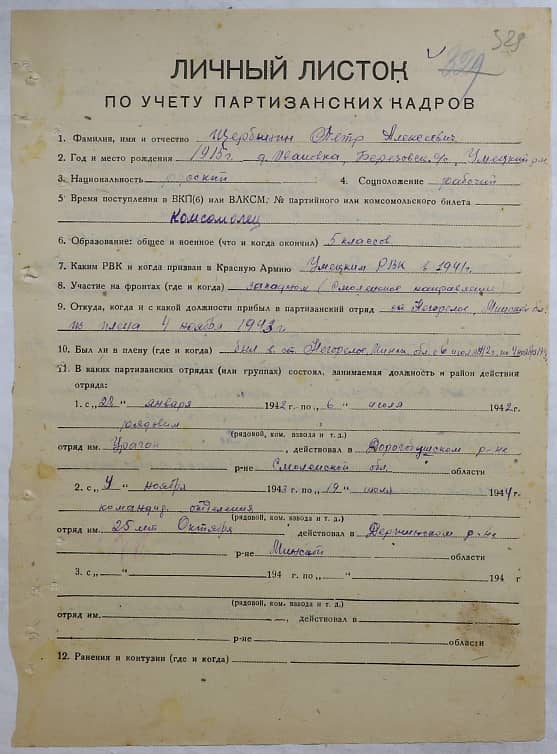 329
ЛИЧНЫЙ ЛИСТОК
ПО УЧЕТУ ПАРТИЗАНСКИХ КАДРОВ
1. Фамилия, имя и отчество Петр Алексеевич
2. Год и место рождения 1915г. д. Ивановка, Умецкий р-н
3. Национальность русский 4. Соцположение рабочий
5 Время поступления в ВКП(б) или ВЛКСМ, № партийного или комсомольского билета
Комсомолец
6. Образование: общее и военное (что и когда окончил) 5 классов
7. Каким РВК и когда призван в Красную Армию Умецким РВК в 1941г.
8. Участие на фронтах (где и когда) западном (Смоленское направление)
9. Откуда, когда и с какой должности прибыл в партизанский отряд ст. Негорелое, Минской обл.
из плена 4 ноября 1943 г
10. Был ли в плену (где и когда) был в ст. Негорелое Минск. обл. с 6 июля 1942г. по 4 ноября
11. В каких партизанских отрядах (или группах) состоял, занимаемая должность и район действия
отряда:
1. с „28 “ января 1942 г. по „6 “ июля 1942г.
рядовым
(рядовой, ком. взвода и т. д.)
отряд им. Ураган , действовал в Дорогобушском р-не
р-не Смоленской обл. области
2. с „4 “ ноября 1943 г. по „19 “ июля 1944г.
командир отделения
(рядовой, ком. взвода и т. д.)
отряд им. 25 лет Октября действовал в Дзержинском р-не
р-не Минской области
3. с „ “ 194 г. по „ “ 194 г
(рядовой, ком. взвода и т. д.)
отряд им. , действовал в
р-не области
12. Ранения и контузии (где и когда)